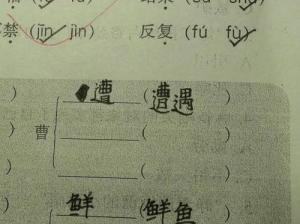 禁 (jīn jìn) 反复 (fú fù)
) 遭 (遭遇 )
曹
) ( )
) ( )
) 鲜 (鲜鱼